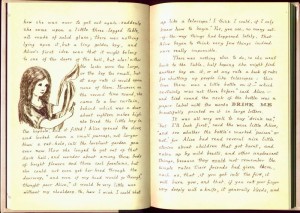 how she was ever to get out again: suddenly
she came upon a little three-legged table,
all made of solid glass; there was nothing
lying upon it, but a tiny golden key, and
Alice's first idea was that it might belong
to one of the doors of the hall, but alas! either
the locks were too large,
or the key too small, but
at any rate it would open
none of them. However on
the second time round, she
came to a low curtain,
behind which was a door
about eighteen inches high:
she tried the little key in
the keyhole, and it fitted! Alice opened the door,
and looked down a small passage, not larger
than a rat-hole, into the loveliest garden you
ever saw. How she longed to get out of that
dark hall, and wander about among those beds
of bright flowers and those cool fountains, but
she could not even get her head through the
doorway, "and even if my head would go through,"
thought poor Alice, "it would be very little use
without my shoulders. Oh, how I wish I could shut
up like a telescope! I think I could, if I only
knew how to begin." For, you see, so many out-
of-the-way things had happened lately, that
Alice began to think very few things indeed
were really impossible.
There was nothing else to do, so she went
back to the table, half hoping she might find
another key on it, or at any rate a book of rules
for shutting up people like telescopes: this
time there was a little bottle on it—"which
certainly was not there before" said Alice—
and tied round the neck of the bottle was a
paper label with the words DRINK ME
beautifully printed on it in large letters.
It was all very well to say "drink me,"
"but I'll look first," said the wise little Alice,
"and see whether the bottle's marked "poison" or
not," for Alice had read several nice little
stories about children that got burnt, and
eaten up by wild beasts, and other unpleasant
things, because they would not remember the
simple rules their friends had given them,
such as, that, if you get into the fire, it
will burn you, and that, if you cut your finger
very deeply with a knife, it generally bleeds, and